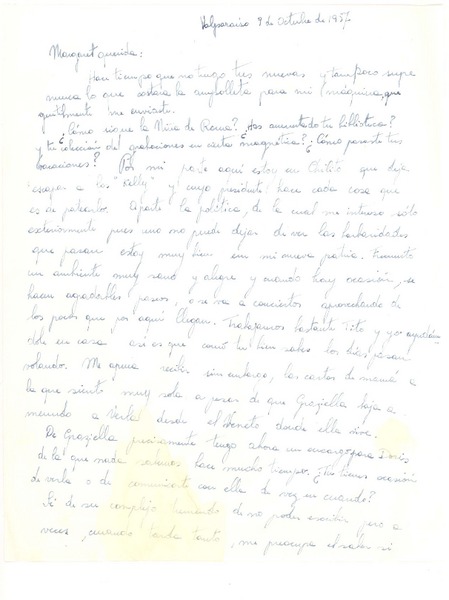 Valparaíso 9 de Octubre de 1957
Margaret querida:
Hace tiempo que no tengo tus nuevas y tampoco supe
nunca lo que costara la ampolleta para mi máquina, que
gentilmente me enviaste.
¿Cómo sigue la Niña de Roma? ¿Has aumentado tu biblioteca?
y tu colección de grabaciones en cinta magnética? ¿Cómo pasaste tus
vacaciones? Por mi parte aquí estoy en Chilito que deja
escapar a los "Kelly" y cuyo presidente hace cada cosa que
es de patearlo. Aparte la política, de la cual me intereso sólo
exteriormente pues uno no puede dejar de ver las barbaridades
que pasan estoy muy bien en mi nueva patria. Encuentro
un ambiente muy sano y alegre y cuando hay ocasión, se
hacen agradables paseos, o se va a conciertos aprovechando de
los pocos que por aquí llegan. Trabajamos bastante Tito y yo
en casa así es que como tú bien sabes los días pasan
volando. Me apena recibir sin embargo, las cartas de mamá a
la que siento muy sola a pesar de que Graziella baja a
menudo a verla desde el Véneto donde ella vive.
De Graziella precisamente tengo ahora un encargo para Doris
de la que nada sabemos hace mucho tiempo. ¿Tú tienes ocasión
de verla o de comunicarte con ella de vez en cuando?
Sé de su complejo tremendo de no poder escribir pero a
veces, cuando tarda tanto, me preocupa el saber si